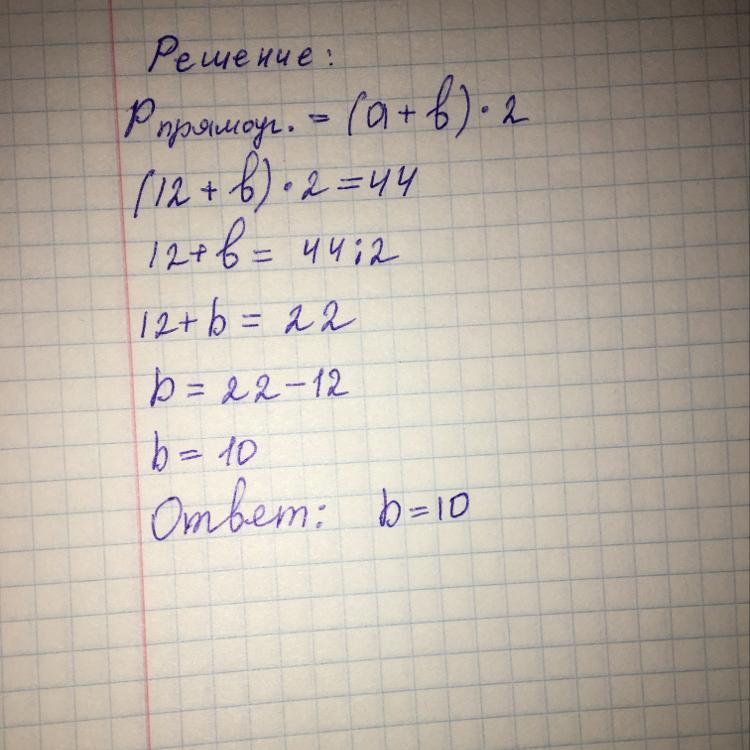 Решение:
Pпрямоуг. = (a + b) · 2
(12 + b) · 2 = 44
12 + b = 44 : 2
12 + b = 22
b = 22 - 12
b = 10
Ответ: b = 10